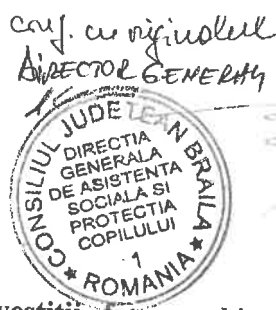 conf. cu originalul
DIRECTOR GENERAL
CONSILIUL JUDETEAN BRAILA
DIRECTIA
GENERALA
DE ASISTENTA
SOCIALA SI
PROTECTIA
COPILULUI
1
★ ROMANIA ★